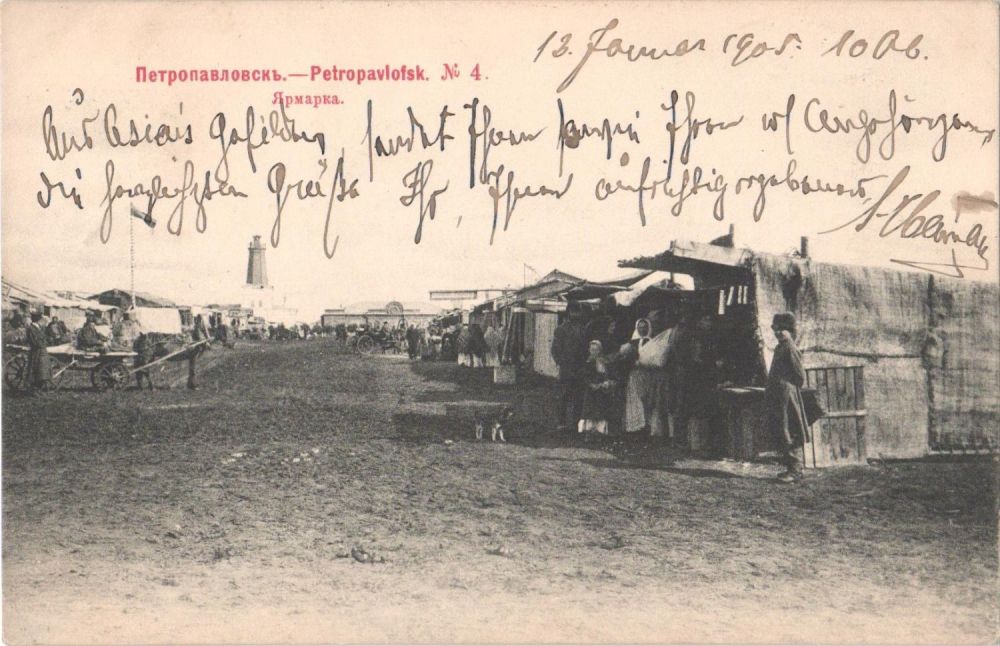 12. Januar 1905. 10 Ab.
Петропавловскъ.—Petropavlofsk. № 4.
Ярмарка.
Aus Asiens Gefilden, sendet Ihnen sowie Ihren w/ Angehörigen,
die herzlichsten Grüße Ihr, Ihnen aufrichtig ergebener